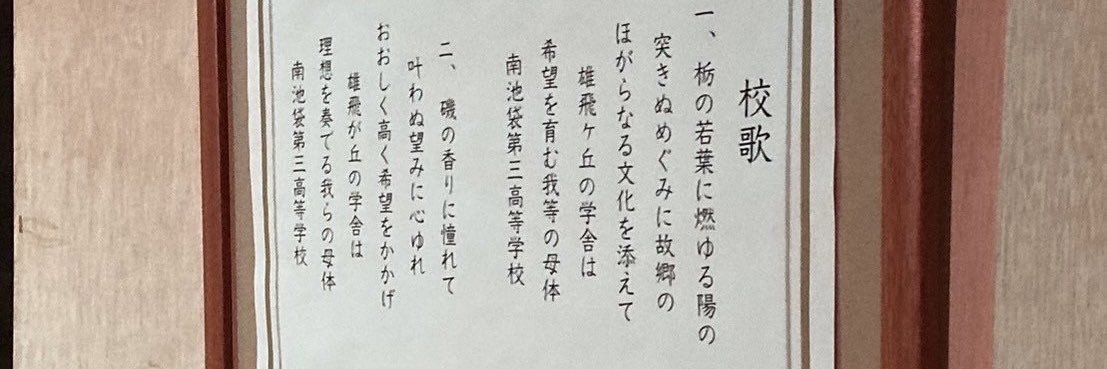 校歌
一、栃の若葉に燃ゆる陽の
突きぬめぐみに故郷の
ほがらなる文化を添えて
雄飛ヶ丘の学舎は
希望を育む我等の母体
南池袋第三高等学校
二、磯の香りに憧れて
叶わぬ望みに心ゆれ
おおしく高く希望をかかげ
雄飛が丘の学舎は
理想を奏でる我らの母体
南池袋第三高等学校